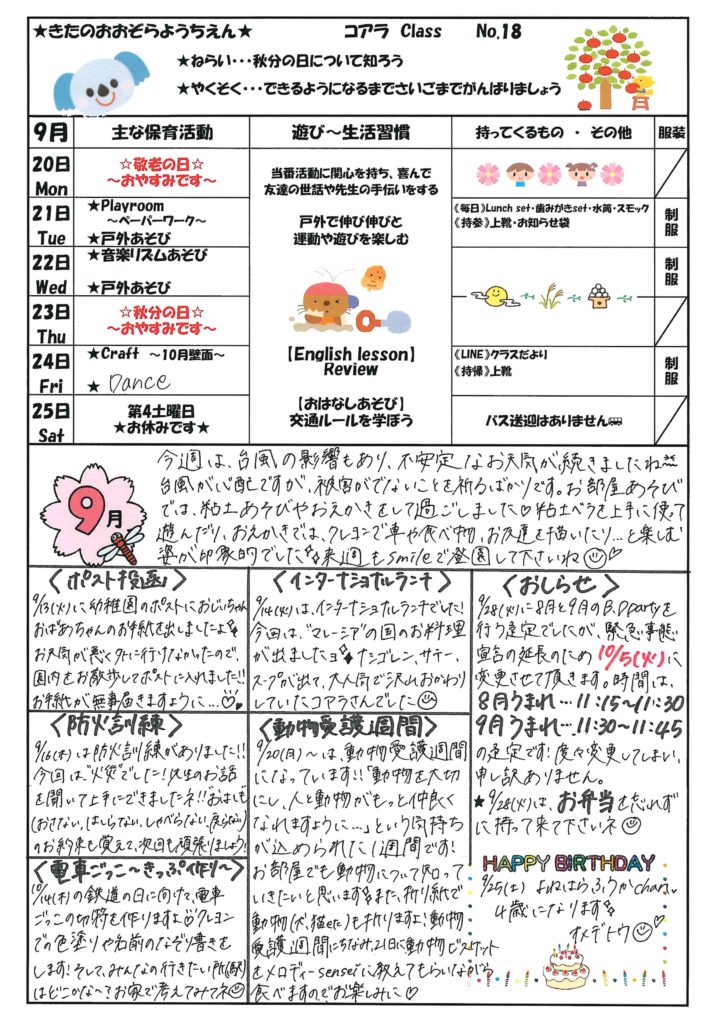 ★きたのおおぞらようちえん★ コアラ Class No.18
★ねらい・・・秋分の日について知ろう
★やくそく・・・できるようになるまでさいごまでがんばりましょう
9月 主な保育活動 遊び～生活習慣 持ってくるもの ・ その他 服装
20日 Mon
☆敬老の日☆
～おやすみです～
21日 Tue
★Playroom
～ペーパーワーク～
★戸外あそび
22日 Wed
★音楽リズムあそび
★戸外あそび
23日 Thu
☆秋分の日☆
～おやすみです～
24日 Fri
★Craft ～10月壁面～
★ Dance
25日 Sat
第4土曜日
★お休みです★
当番活動に関心を持ち、喜んで
友達の世話や先生の手伝いをする
戸外で伸び伸びと
運動や遊びを楽しむ
【English lesson】
Review
【おはなしあそび】
交通ルールを学ぼう
《毎日》Lunch set・歯みがきset・水筒・スモック
《持参》上靴・お知らせ袋
制服
制服
《LINE》クラスだより
《持帰》上靴
制服
バス送迎はありません
9月
今週は、台風の影響もあり、不安定なお天気が続きましたね
台風が心配ですが、被害がでないことを祈るばかりです。お部屋あそび
では、粘土あそびやおえかきをして過ごしました♡粘土ベラを上手に使って
遊んだり、おえかきでは、クレヨンで車や食べ物、お友達を描いたり…と楽しむ
姿が印象的でした 来週もsmileで登園して下さいね
＜ポスト投函＞
9/13(火)に幼稚園のポストにおじいちゃん
おばあちゃんのお手紙を出しましたよ
お天気が悪く外に行けなかったので、
園内をお散歩してポストに入れました!!
お手紙が無事届きますように…♡
＜インターナショナルランチ＞
9/14(火)は、インターナショナルランチでした!
今回は、"マレーシア"の国のお料理
が出ましたヨ ナシゴレン、サテー、
スープが出て、大人気で沢山おかわり
していたコアラさんでした
＜おしらせ＞
9/28(火)に8月と9月のB.Dpartyを
行う予定でしたが、緊急事態
宣言の延長のため 10/5(火)に
変更させて頂きます。時間は、
8月うまれ…11:15～11:30
9月うまれ…11:30～11:45
の予定です!度々変更してしまい、
申し訳ありません。
★9/28(火)は、お弁当を忘れずに
に持って来て下さいネ
＜防火訓練＞
9/16(木)は防火訓練がありました!!
今回は"火災"でした!先生のお話
を聞いて上手にできましたネ!!"おはしも"
(おさない、はしらない、しゃべらない、戻らない)
のお約束も覚えて、次回も頑張りましょう!
＜動物愛護週間＞
9/20(月)～は、動物愛護週間
になっています!!「動物を大切
にし、人と動物がもっと仲良く
なれますように…」という気持ち
が込められた1週間です!
お部屋でも動物について知って
いきたいと思います また、折り紙で
動物(犬、猫etc)も折りますよ!動物
愛護週間にちなみ、21日に動物ビスケット
をメロディーsenseiに教えてもらいながら
食べますのでお楽しみに♡
＜電車ごっこ～きっぷ作り～＞
10/14(木)の鉄道の日に向けて、電車
ごっこの切符を作りますよ クレヨン
での色塗りや名前のなぞり書きを
します!そして、みんなの行きたい所(駅)
はどこかな～?お家で考えてみてネ
HAPPY BIRTHDAY
9/25(土) よねはらふうかchan
4歳になります
オメデトウ